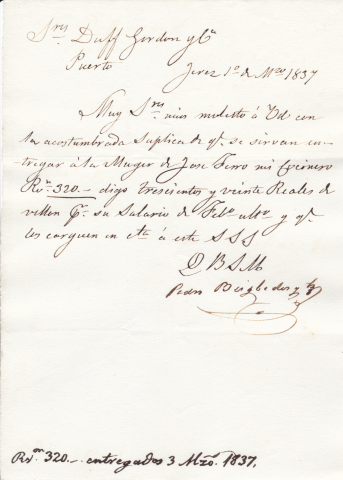 Sres Duff Gordon y Ca
Puerto Jerez 1o de Mzo 1837
Muy Sres mios molesto á Vd con
la acostumbrada Suplica de qe se sirvan en-
tregar á la Muger de Jose Ferro mi Cocinero
Rvn 320.- digo trescientos y veinte Reales de
vellon pr su Salario de Febo ulto y qe
los carguen en cta á este S S S
Q B S M
Pedro Beigbeder
Rvon 320.- entregados 3 Mzo 1837.